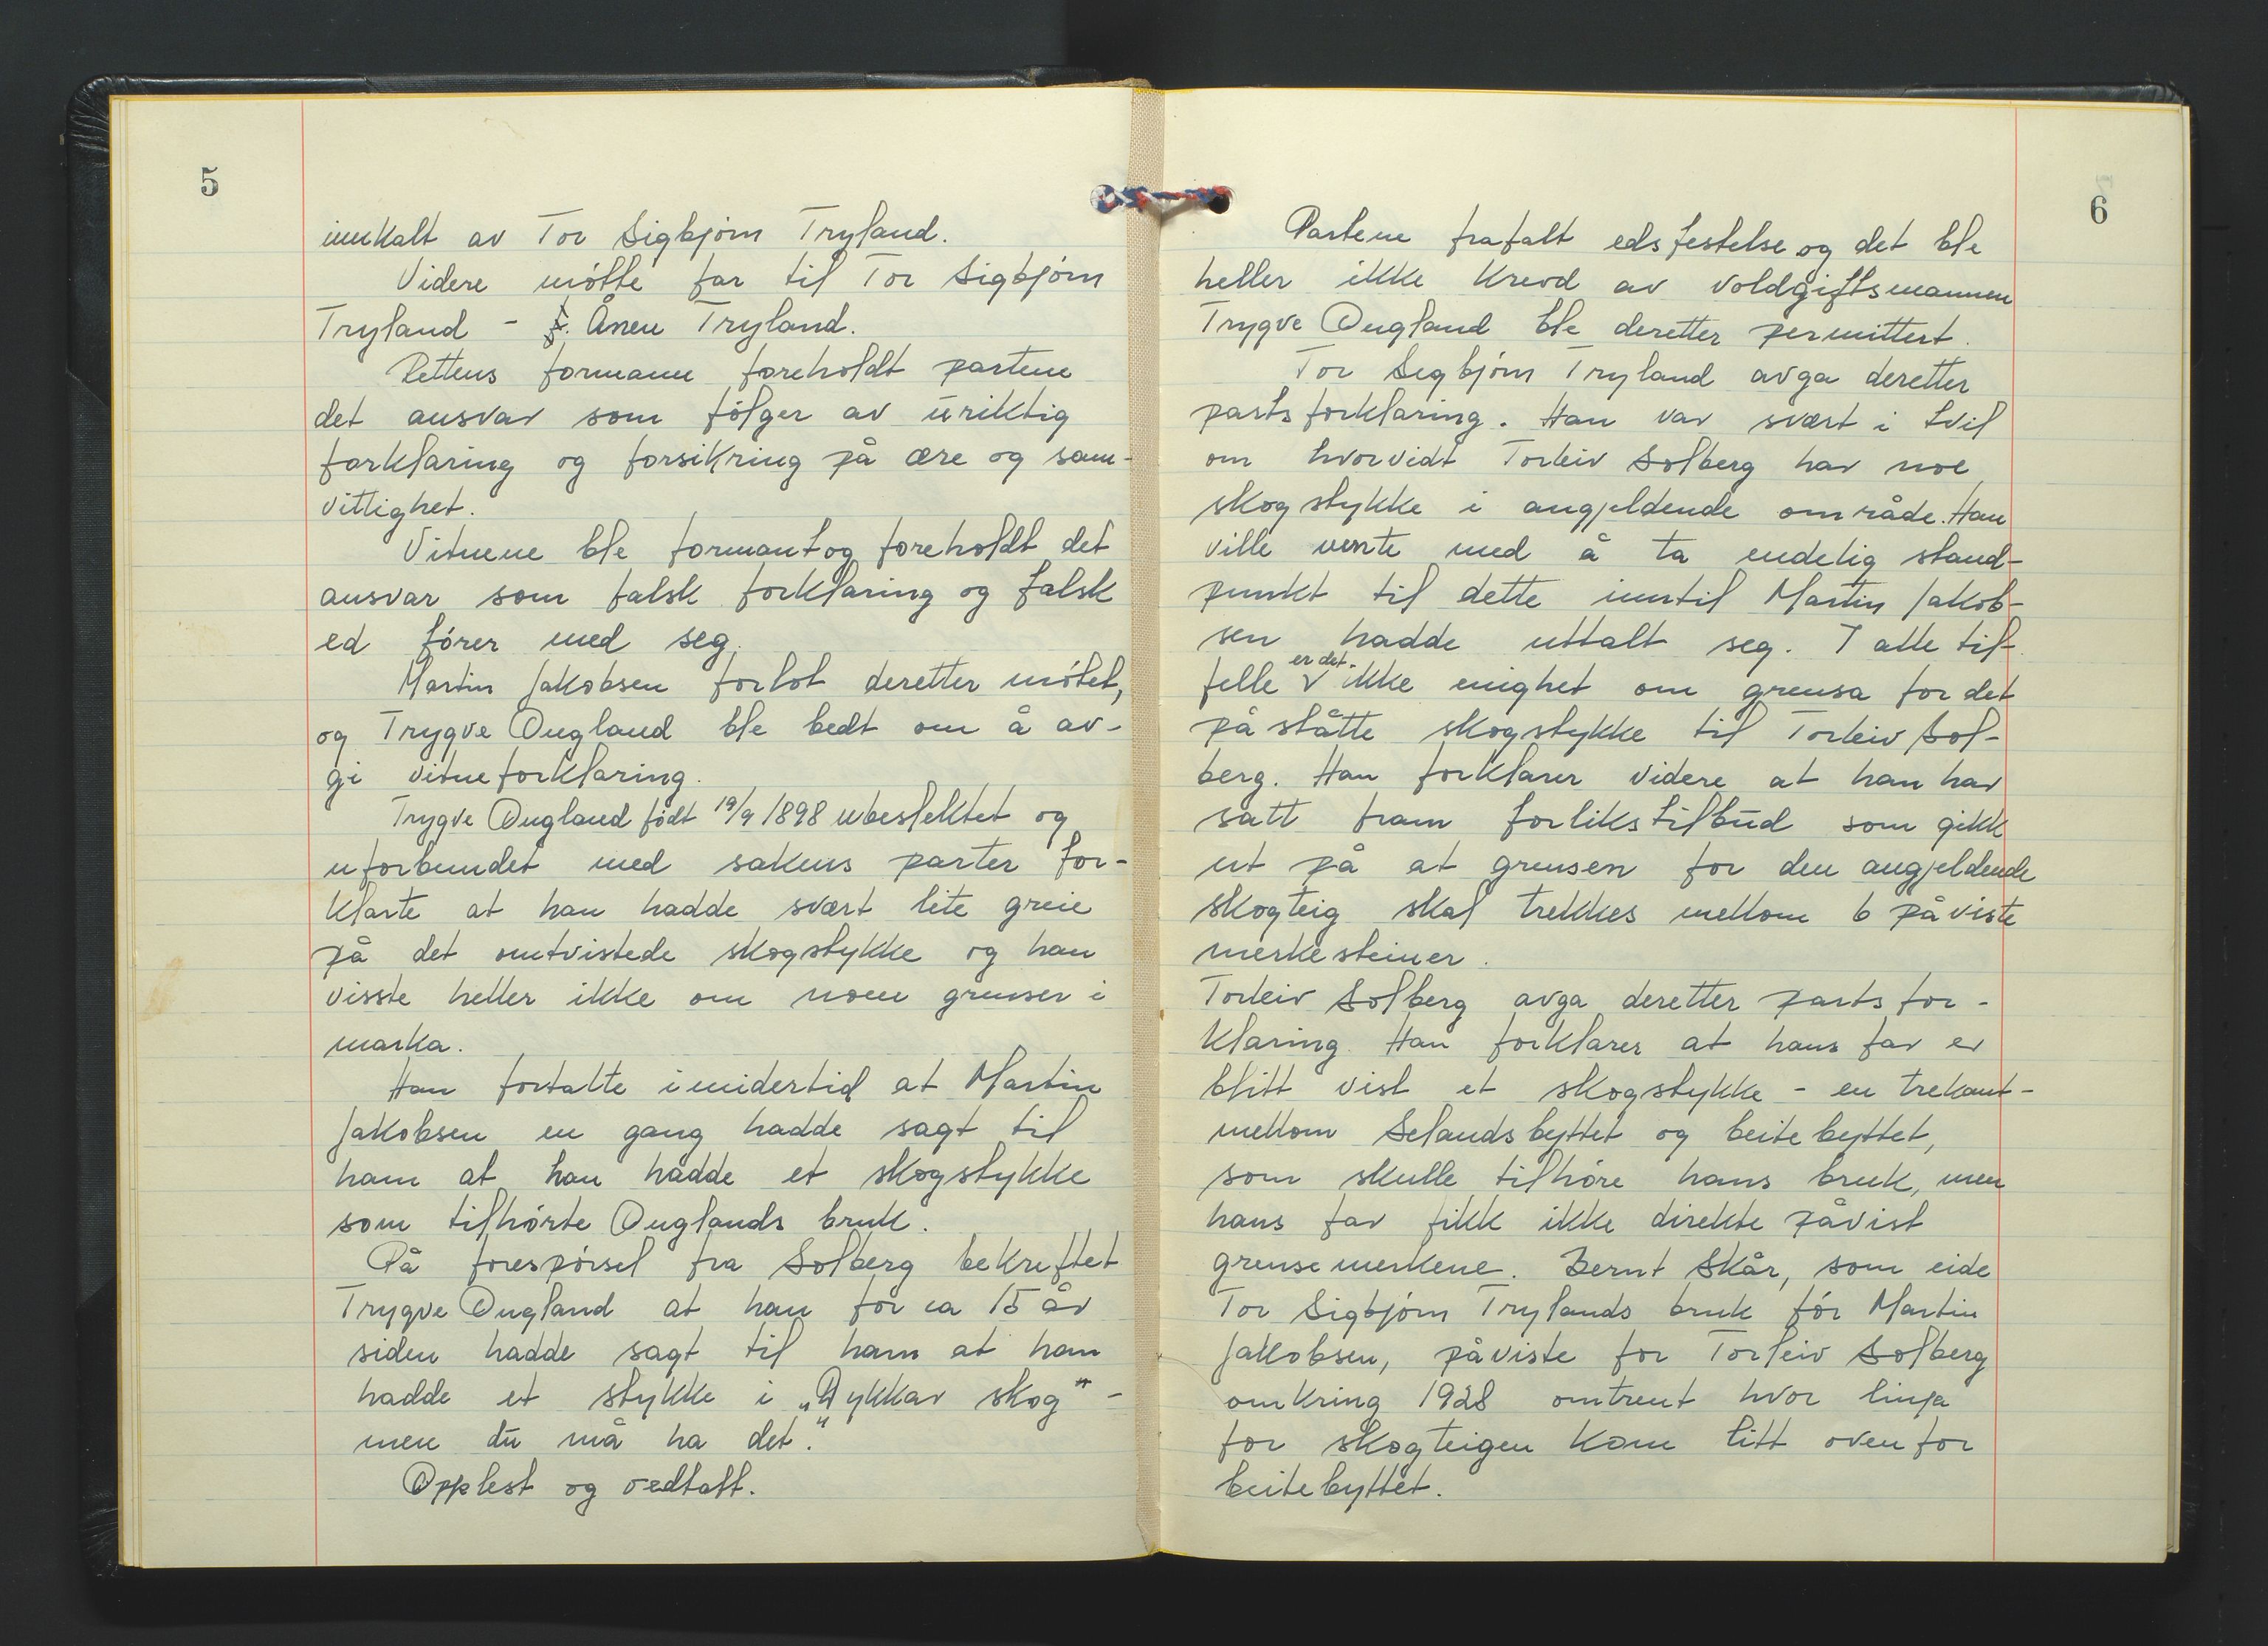 5
innkalt av Tor Sigbjörn Tryland.
Videre mötte far til Tor Sigbjörn
Tryland - Ånen Tryland.
Rettens formann foreholdt partene
det ansvar som fölger av uriktig
forklaring og forsikring på ære og sam-
vittighet.
Vitnene ble formant og foreholdt det
ansvar som falsk forklaring og falsk
ed förer med seg.
Martin Jakobsen forlot deretter mötet,
og Trygve Ougland ble bedt om å av-
gi vitneforklaring.
Trygve Ougland födt 19/9 1898 ubeslektet og
uforbundet med sakens parter for-
klarte at han hadde svært lite greie
på det omtvistede skogstykke og han
visste heller ikke om noen grenser i
marka.
Han fortalte imidertid at Martin
Jakobsen en gang hadde sagt til
ham at han hadde et skogstykke
som tilhörte Ouglands bruk.
På forespörsel fra Solberg bekreftet
Trygve Ougland at han for ca 15 år
siden hadde sagt til ham at han
hadde et stykke i „Dykkar skog" -
men du må ha det."
Opplest og vedtatt.
6
Partene frafalt edsfestelse og det ble
heller ikke krevd av voldgiftsmannen
Trygve Ougland ble deretter permittert.
Tor Sigbjörn Tryland avga deretter
partsforklaring. Han var svært i tvil
om hvorvidt Torleiv Solberg har noe
skogstykke i angjeldende område. Han
ville vente med å ta endelig stand-
punkt til dette inntil Martin Jakob-
sen hadde uttalt seg. I alle til-
felle er det ikke enighet om grensa for det
påståtte skogstykke til Torleiv Sol-
berg. Han forklarer videre at han har
satt fram forlikstilbud som gikk
ut på at grensen for den angjeldende
skogteig skal trekkes mellom 6 påviste
merkesteiner.
Torleiv Solberg avga deretter partsfor-
klaring. Han forklarer at hans far er
blitt vist et skogstykke - en trekant-
mellom Selandsbyttet og beitebyttet,
som skulle tilhöre hans bruk, men
hans far fikk ikke direkte påvist
grensemerkene. Bernt Skår, som eide
Tor Sigbjörn Trylands bruk för Martin
Jakobsen, påviste for Torleiv Solberg
omkring 1928 omtrent hvor linja
for skogteigen kom litt ovenfor
beitebyttet.